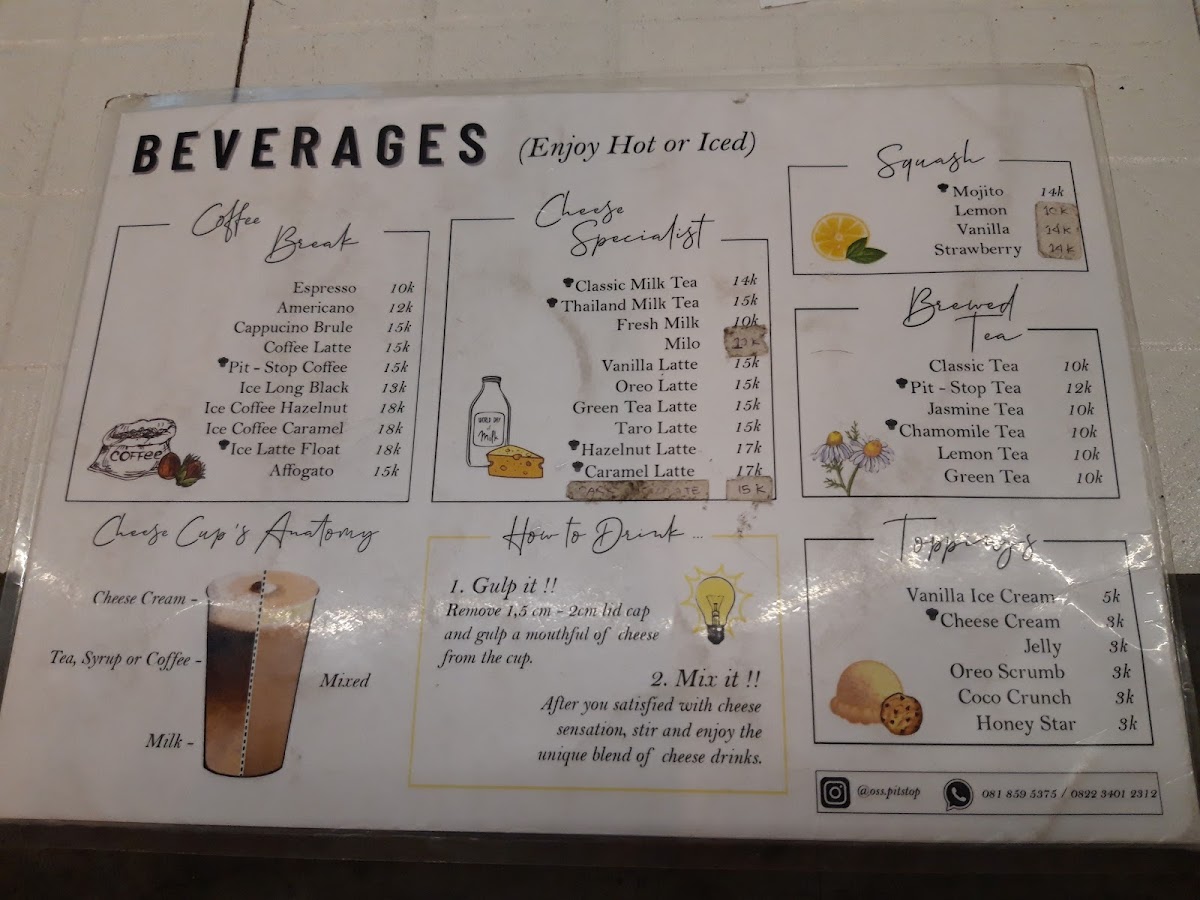 BEVERAGES (Enjoy Hot or Iced)
Coffee
Break
Espresso 10k
Americano 12k
Cappucino Brule 15k
Coffee Latte 15k
Pit - Stop Coffee 15k
Ice Long Black 13k
Ice Coffee Hazelnut 18k
Ice Coffee Caramel 18k
Ice Latte Float 18k
Affogato 15k
COFFEE
Cheese
Specialist
Classic Milk Tea 14k
Thailand Milk Tea 15k
Fresh Milk 10k
Milo
Vanilla Latte 15k
Oreo Latte 15k
Green Tea Latte 15k
Taro Latte 15k
Hazelnut Latte 17k
Caramel Latte 17k
15K
Milk
Squash
Mojito 14k
Lemon 10K
Vanilla 14K
Strawberry 14K
Brewed
Tea
Classic Tea 10k
Pit - Stop Tea 12k
Jasmine Tea 10k
Chamomile Tea 10k
Lemon Tea 10k
Green Tea 10k
Cheese Cup's Anatomy
Cheese Cream -
Tea, Syrup or Coffee -
Mixed
Milk -
How to Drink ...
1. Gulp it !!
Remove 1,5 cm - 2cm lid cap
and gulp a mouthful of cheese
from the cup.
2. Mix it !!
After you satisfied with cheese
sensation, stir and enjoy the
unique blend of cheese drinks.
Toppings
Vanilla Ice Cream 5k
Cheese Cream 3k
Jelly 3k
Oreo Scrumb 3k
Coco Crunch 3k
Honey Star 3k
@oss.pitstop 081 859 5375 / 0822 3401 2312